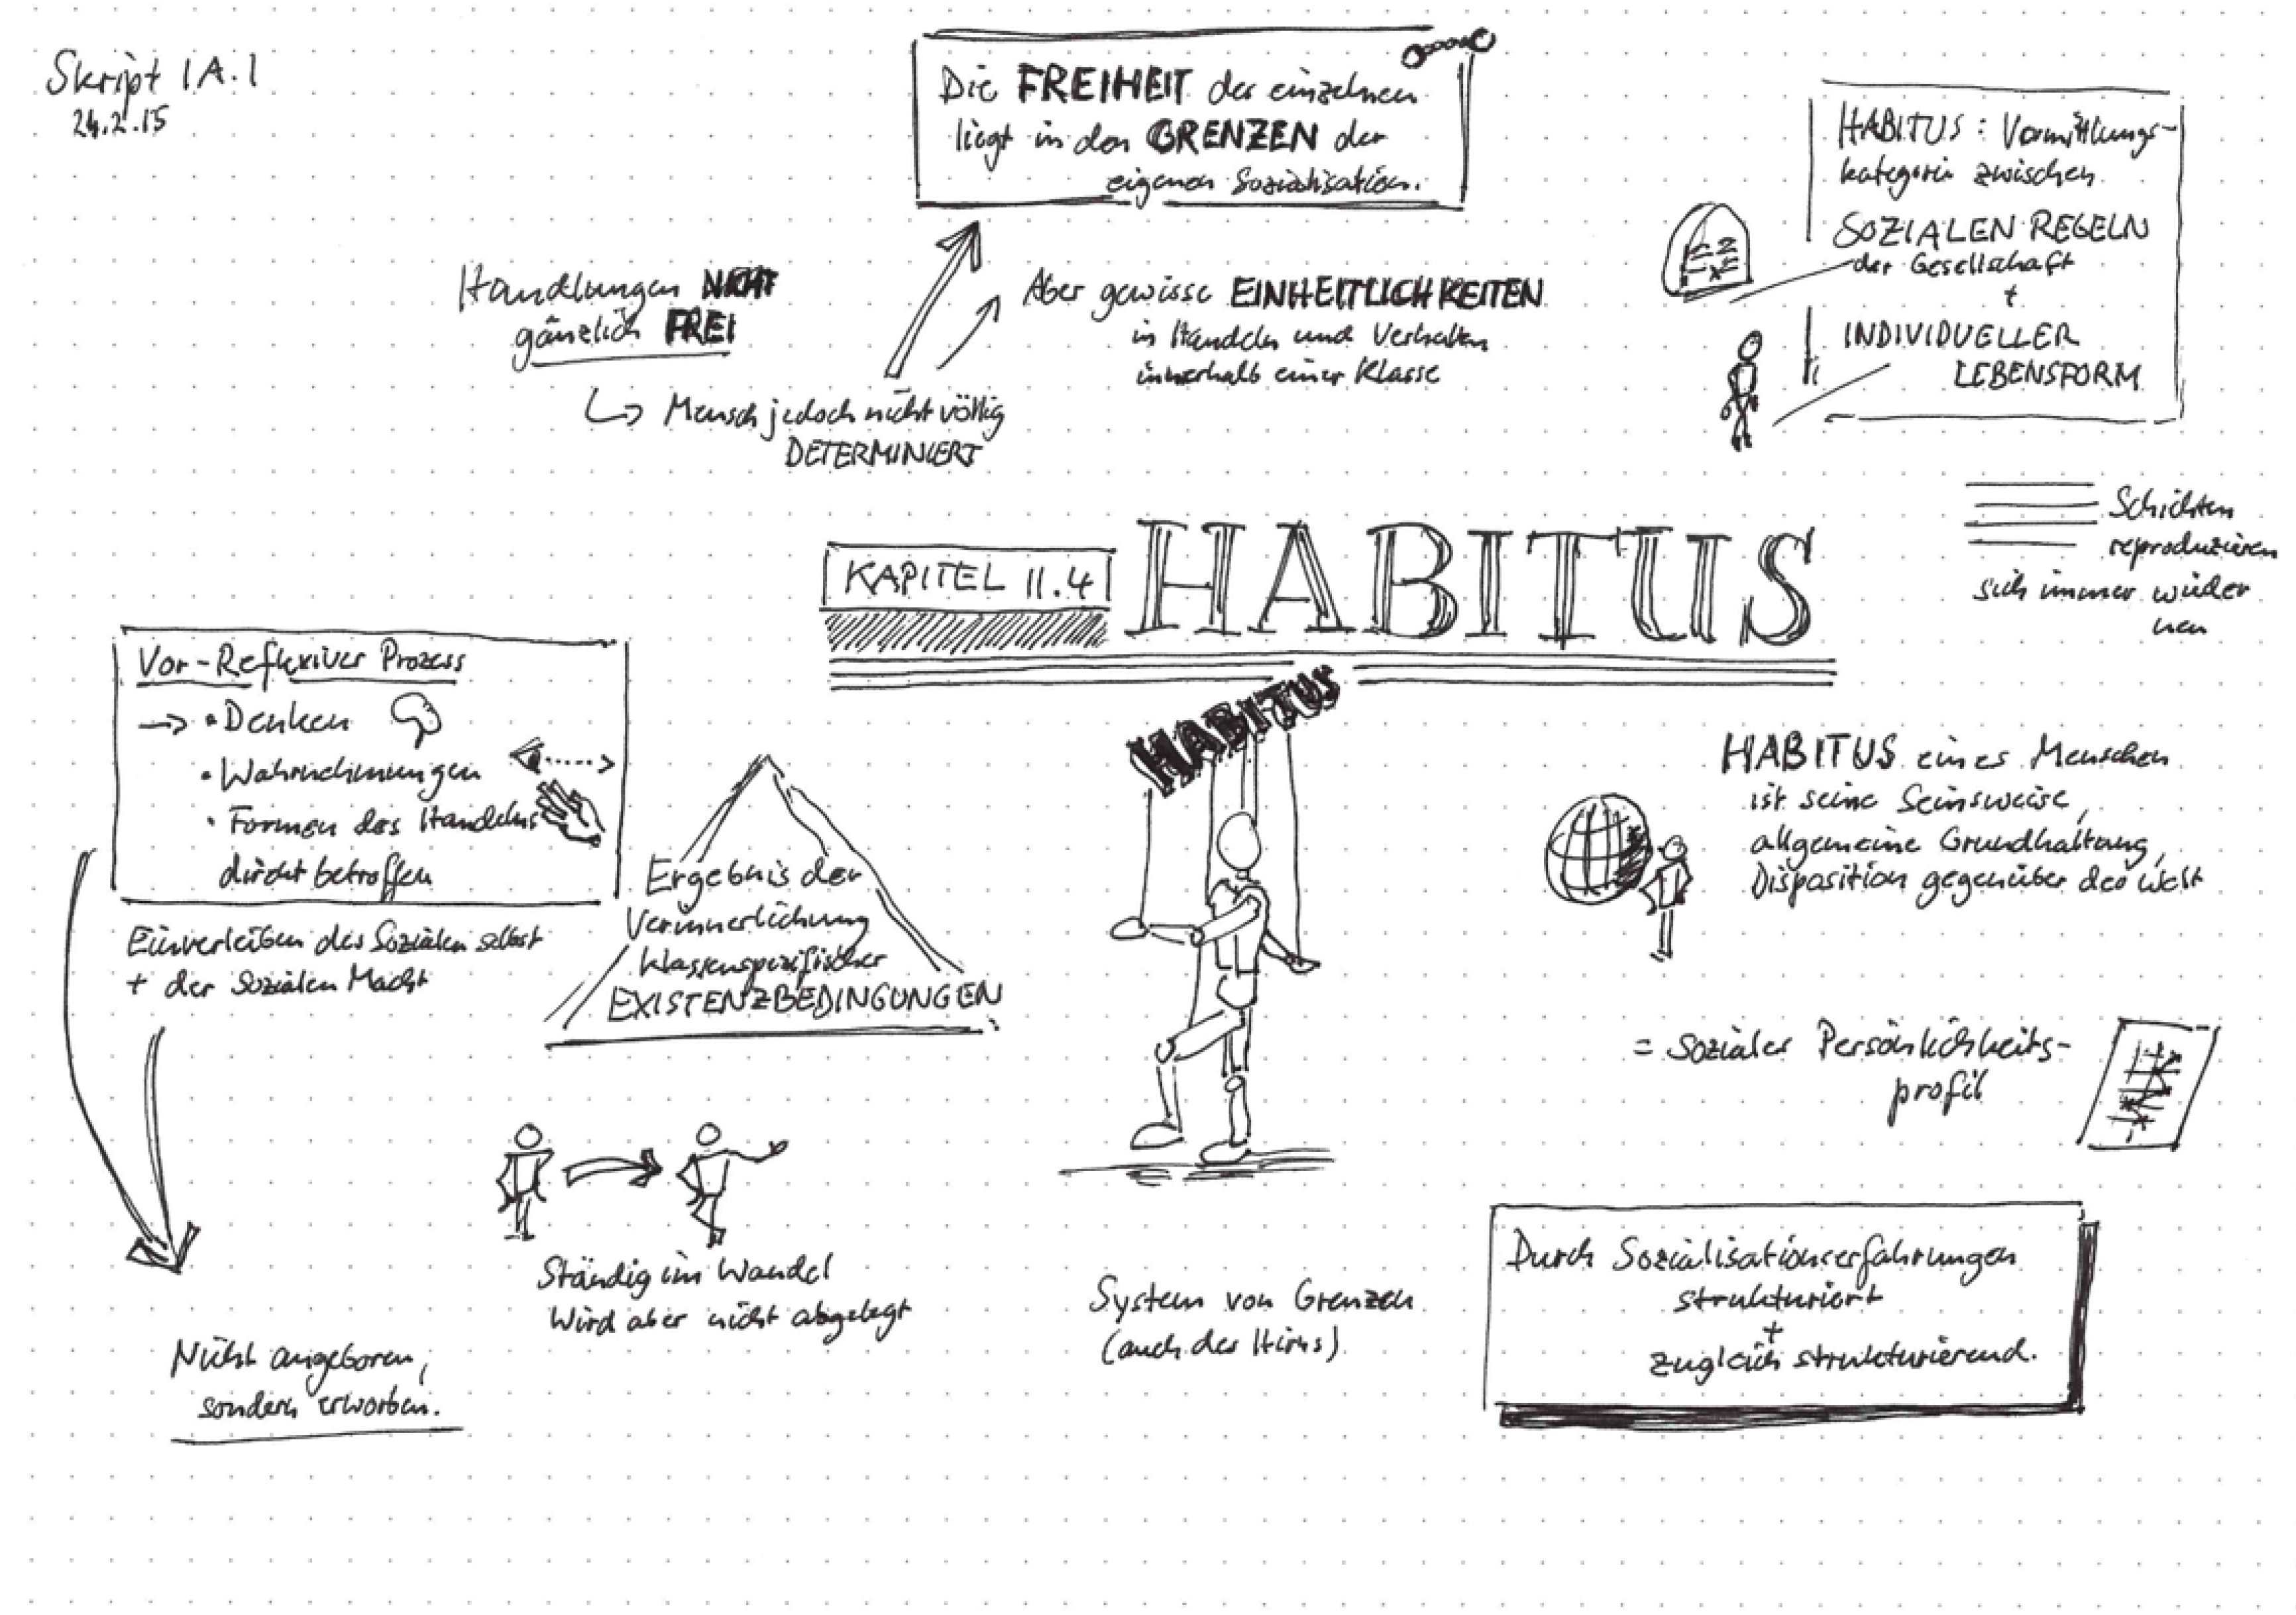 Skript 1A.1
24.2.15
Die FREIHEIT der einzelnen
liegt in den GRENZEN der
eigenen Sozialisation.
HABITUS: Vermittlungs-
kategorie zwischen
SOZIALEN REGELN
der Gesellschaft
+
INDIVIDUELLER
LEBENSFORM
Handlungen NICHT
gänzlich FREI
↳ Mensch jedoch nicht völlig
DETERMINIERT
Aber gewisse EINHEITLICHKEITEN
in Handeln und Verhalten
innerhalb einer Klasse
Schichten
reproduzieren
sich immer wieder
neu
KAPITEL II.4
HABITUS
Vor-Reflexiver Prozess
→ • Denken
• Wahrnehmungen
• Formen des Handelns
direkt betroffen
Einverleiben des Sozialen selbst
+ der Sozialen Macht
Nicht angeboren,
sondern erworben.
Ergebnis der
Verinnerlichung
klassenspezifischer
EXISTENZBEDINGUNGEN
Ständig im Wandel
Wird aber nicht abgelegt
HABITUS
System von Grenzen
(auch des Hirns)
HABITUS eines Menschen
ist seine Seinsweise,
allgemeine Grundhaltung,
Disposition gegenüber der Welt
= Sozialer Persönlichkeits-
profil
Durch Sozialisationserfahrungen
strukturiert
+
zugleich strukturierend.